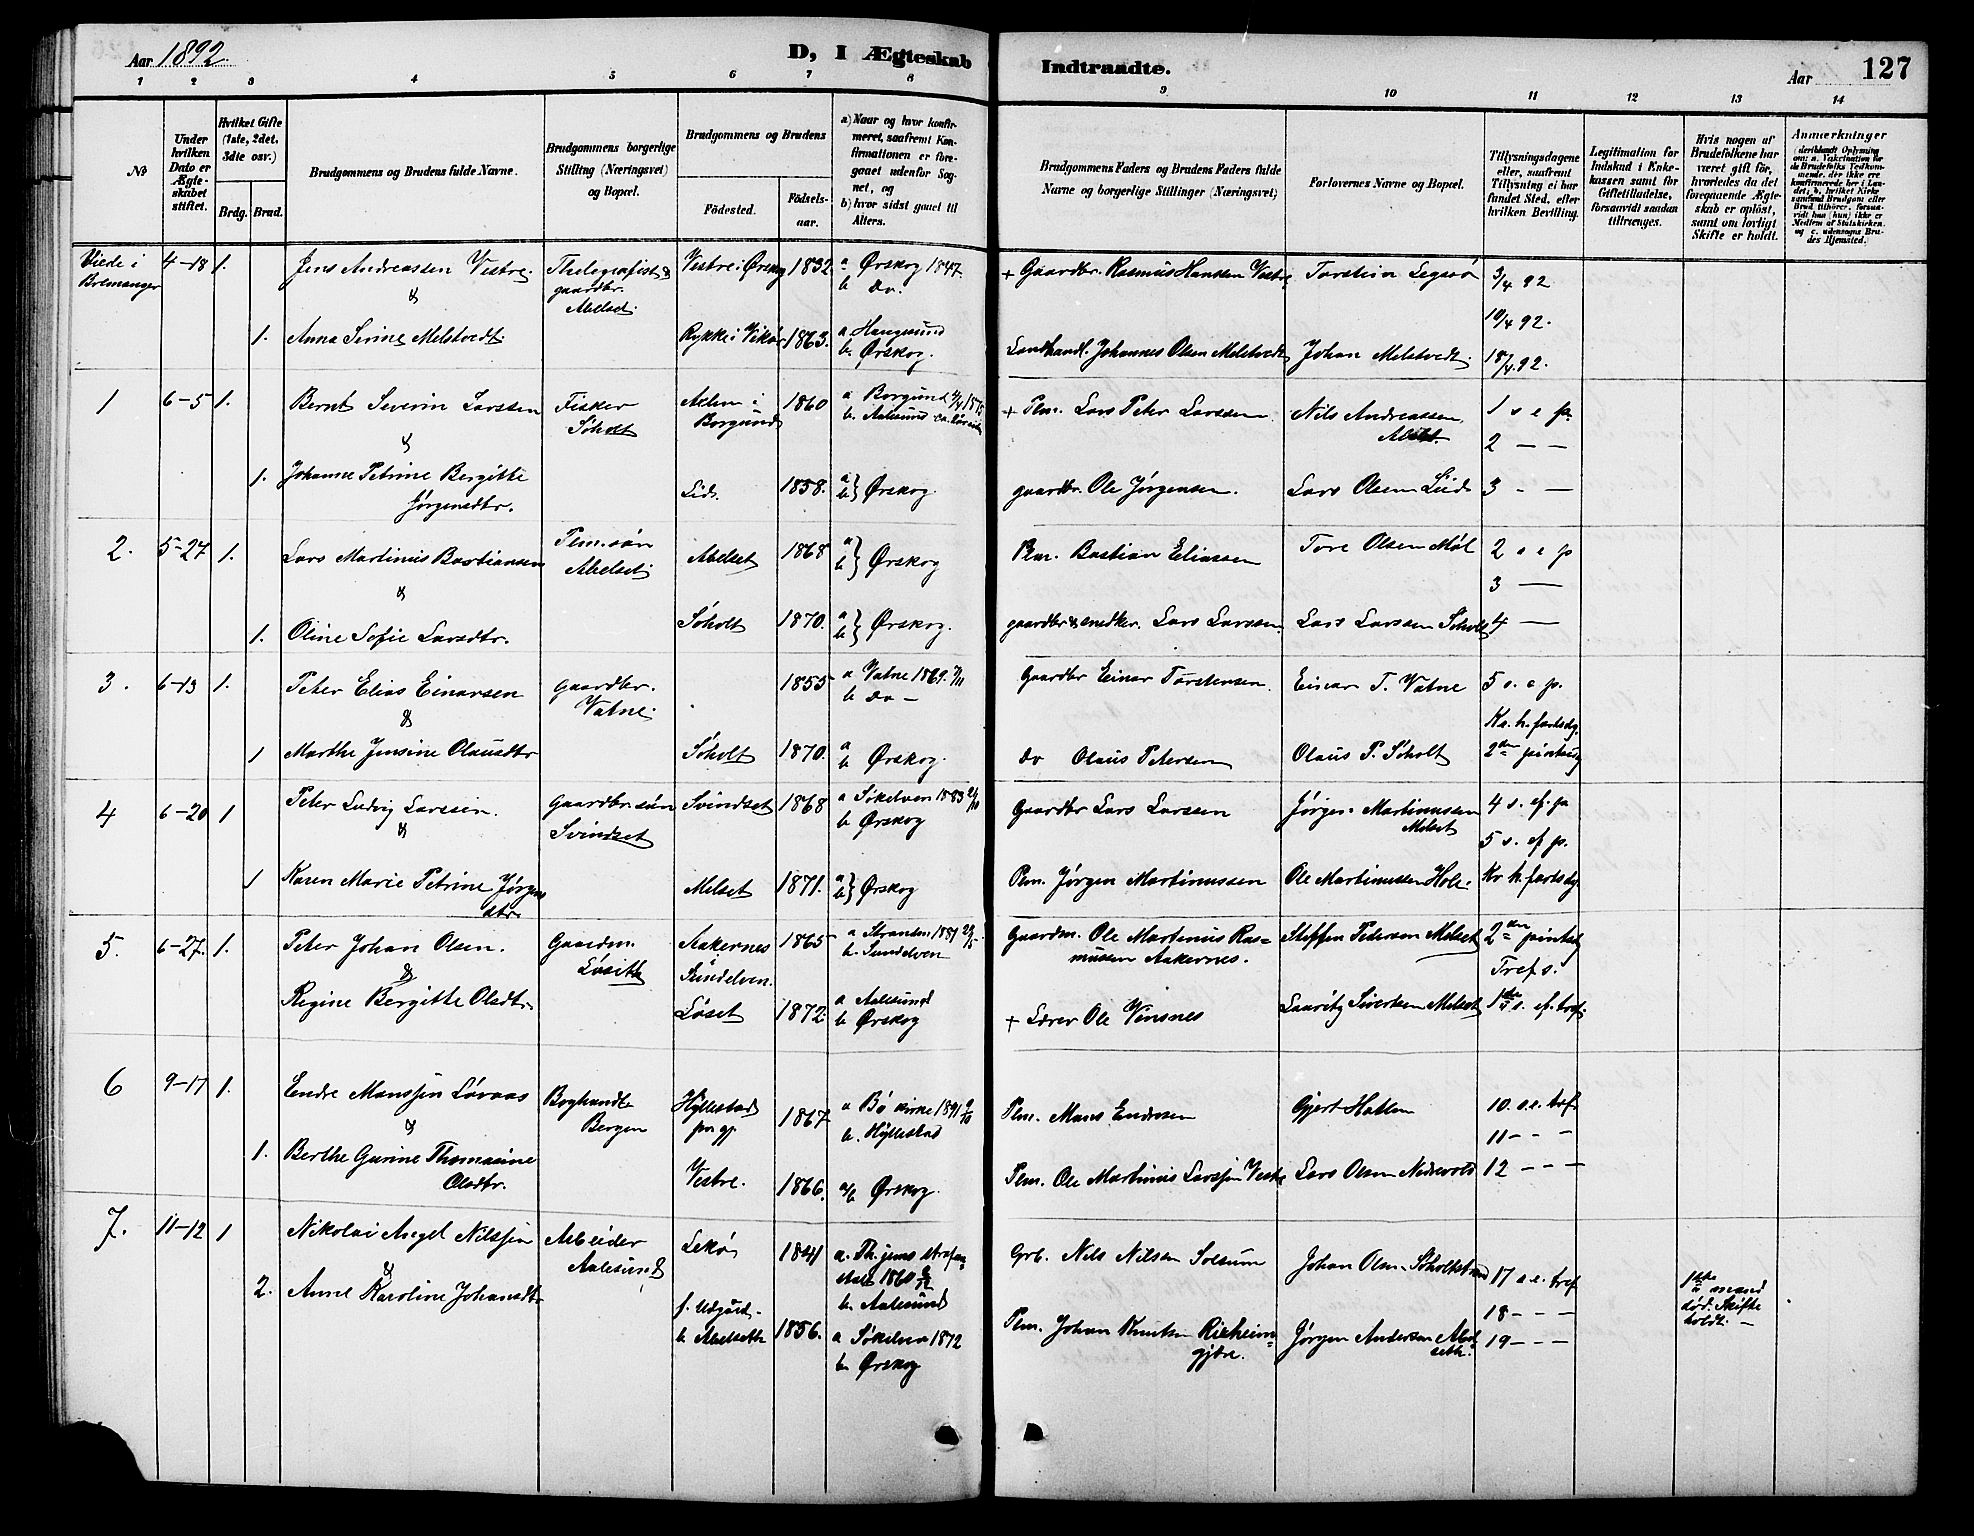 Aar 1892.
D, I Ægteskab Indtraadte.
Aar
127
1 2 3 4 5 6 7 8 9 10 11 12 13 14
No
Under hvilken Dato er Ægteskabet stiftet.
Hvilket Gifte (1ste, 2det, 3die osv.)
Brdg. Brud.
Brudgommens og Brudens fulde Navne.
Brudgommens borgerlige Stilling (Næringsvei) og Bopæl.
Brudgommens og Brudens
Fødested.
Fødselsaar.
a) Naar og hvor konfirmeret, saafremt Konfirmationen er foregaaet udenfor Sognet, og
b) hvor sidst gaaet til Alters.
Brudgommens Faders og Brudens Faders fulde Navne og borgerlige Stillinger (Næringsvei)
Forlovernes Navne og Bopæl.
Tillysningsdagene eller, saafremt Tillysning ei har fundet Sted, efter hvilken Bevilling.
Legitimation for Indskud i Enkekassen samt for Giftetilladelse, forsaavidt saadan tiltrænges.
Hvis nogen af Brudefolkene har været gift før, hvorledes da det foregaaende Ægteskab er opløst, samt om lovligt Skifte er holdt.
Anmærkninger
Viede i Bremanger
4-18 1. Jens Andreassen Vestre. Thelegrafist & gaardbr. Abelset. Vestre i Ørskog 1832 a Ørskog 1847. b Do. + Gaardbr. Rasmus Hanssen Vestre Torstein Legsø 3/4 92
&
10/4 92.
1. Anna Serine Melstvedt. Rykke i Vikør 1863. a Haugesund b. Ørskog. Landhandl. Johannes Olsen Melstvedt Johan Melstvedt. 18/4 92.
1 6-5 1. Bernt Severin Larssen Fisker Søholt Axlen i Borgund 1860 a Borgund 1875 b. Aalesund + Plm. Lars Peter Larssen Nils Andreassen Abelst. 1 s e p.
&
2 — —
1. Johanne Petrine Bergitte Jørgensdtr. Lid. 1858. a b } Ørskog. gaardbr. Ole Jørgensen. Lars Olsen Liid 3 - —
2. 5-27 1. Lars Martinus Bastiansen Plm. søn Abelset. Abelset 1868 a b } Ørskog Plm. Bastian Eliassen Tore Olsen Møl 2 s e p
&
3 —
1. Oline Sofie Larsdtr. Søholt 1870. a b } Ørskog. gaardbr & snedker. Lars Larssen. Lars Larssen Søholt 4 —
3. 6-13 1. Peter Elias Einarsen gaardbr. Vatne. 1855 a Vatne 1869. b Do — Gaardbr Einar Torstensen. Einar T. Vatne 5 s. e p.
&
Kr. h. fartsdg.
1 Marthe Jensine Olausdtr Søholt 1870. a b Ørskog. do Olaus Petersen Olaus P. Søholt 2den pintsdg
4 6-20 1 Peter Ludvig Larssen. Gaardbr. søn Svindset Svindset 1868 a Søkelven 1883 b Ørskog Gaardbr Lars Larssen Jørgen Martinussen Melset 4 s. ef. p
&
5 s. ef p.
1 Karen Marie Petrine Jørgensdtr. Melset 1871. a b } Ørskog Plm. Jørgen Martinussen Ole Martinussen Hole. Kr h. fartsdg
5. 6-27. 1. Peter Johan Olsen. Gaardm. Løseth Aakernes Sundelven. 1865 a Stranden 1881 b. Sundelven Gaardm. Ole Martinus Rasmussen Aakernes. Steffen Pedersen Melset 2den pintsdg
&
Tref s.
Regine Bergitte Olsdtr. Løset 1872 a Aalesund b Ørskog + Lærer Ole Vinsnes Lauritz Sivertsen Melset 1ste s. ef. tref.
6 9-17 1. Endre Manssen Løvaas Boghandl. Bergen Hyllestad 1867 a Bø kirke b. Hyllestad Plm. Mans Endresen Gjert Hatlen 10. s.e. tref.
&
11 - - -
1. Berthe Gurine Thomasine Olsdtr. Vestre. 1866. a/b Ørskog. Plm. Ole Martinus Larssen Vestre Lars Olsen Nedrevold 12 - - -
7. 11-12 1 Nikolai Angel Nilssen Arbeider Aalesund Lekø 1841 a. Th.jems strafanstalt 1860 b. Aalesund Grb. Nils Nilsen Solsum Johan Olsen Søholtstrand 17 s.e. tref
&
18 - - -
2. Anne Karoline Johansdtr f. Udgård b. Abelseth 1856. a Søkelven 1872 b. Ørskog Plm. Johan Knutsen Rieheimgjære. Jørgen Andersen Abelseth. 19 - - -
1ste mand død. Skifte holdt. —